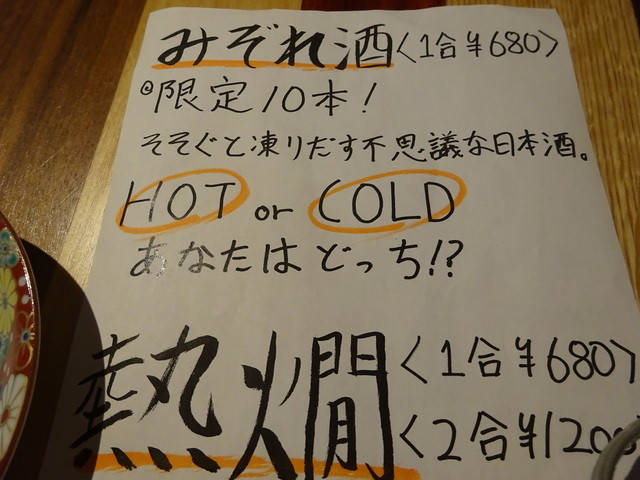 みぞれ酒〈1合¥680〉
限定10本!
そそぐと凍りだす不思議な日本酒。
HOT or COLD
あなたはどっち!?
熱燗〈1合¥680〉
〈2合¥1200